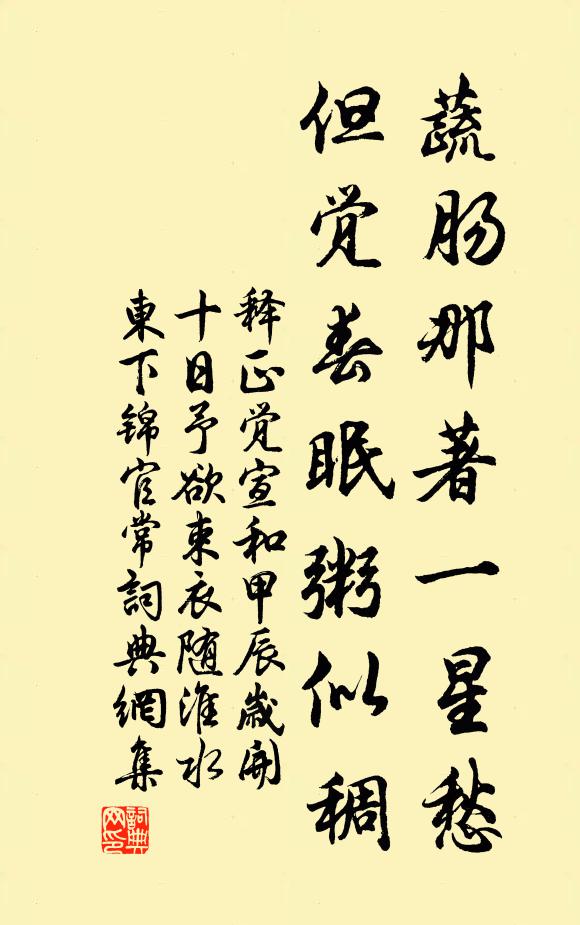 蔬肠那著一星愁
但觉春眠粥似稠
释正觉宣和甲辰歲開
十日予欲東衣随淮水
東下锦官常詞典網集
詞典网印